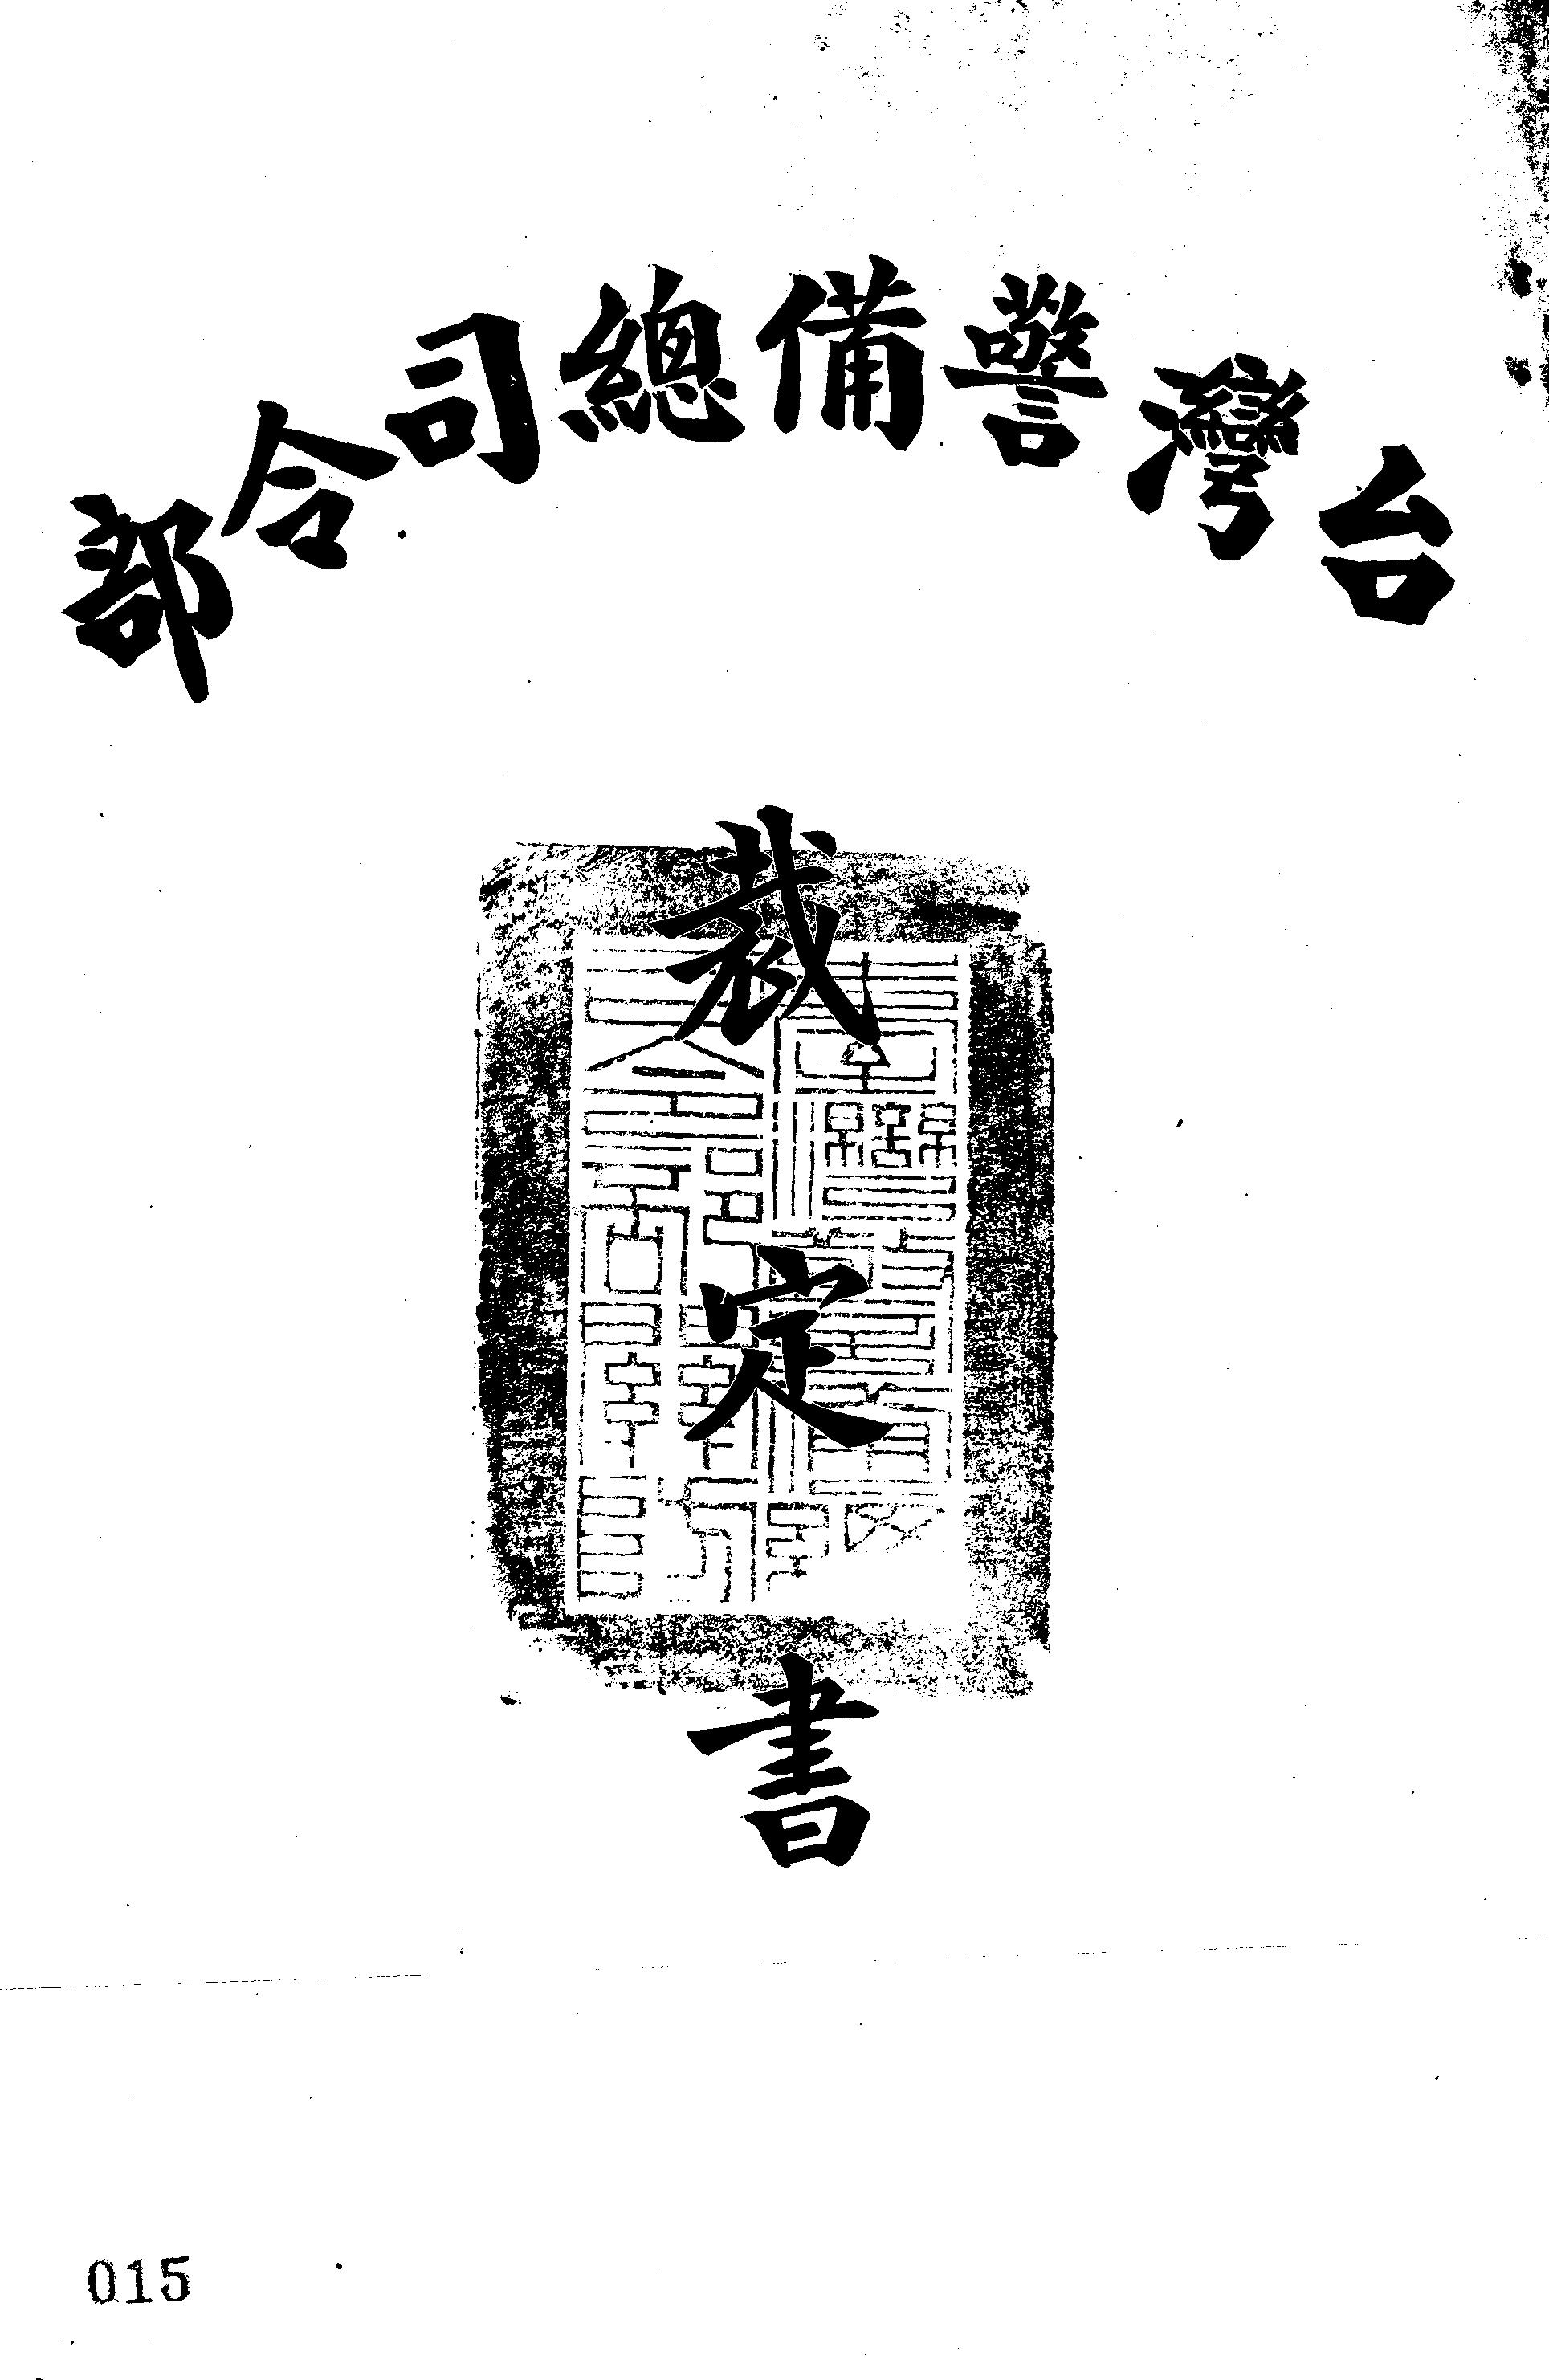 台灣警備總司令部
裁定書
015